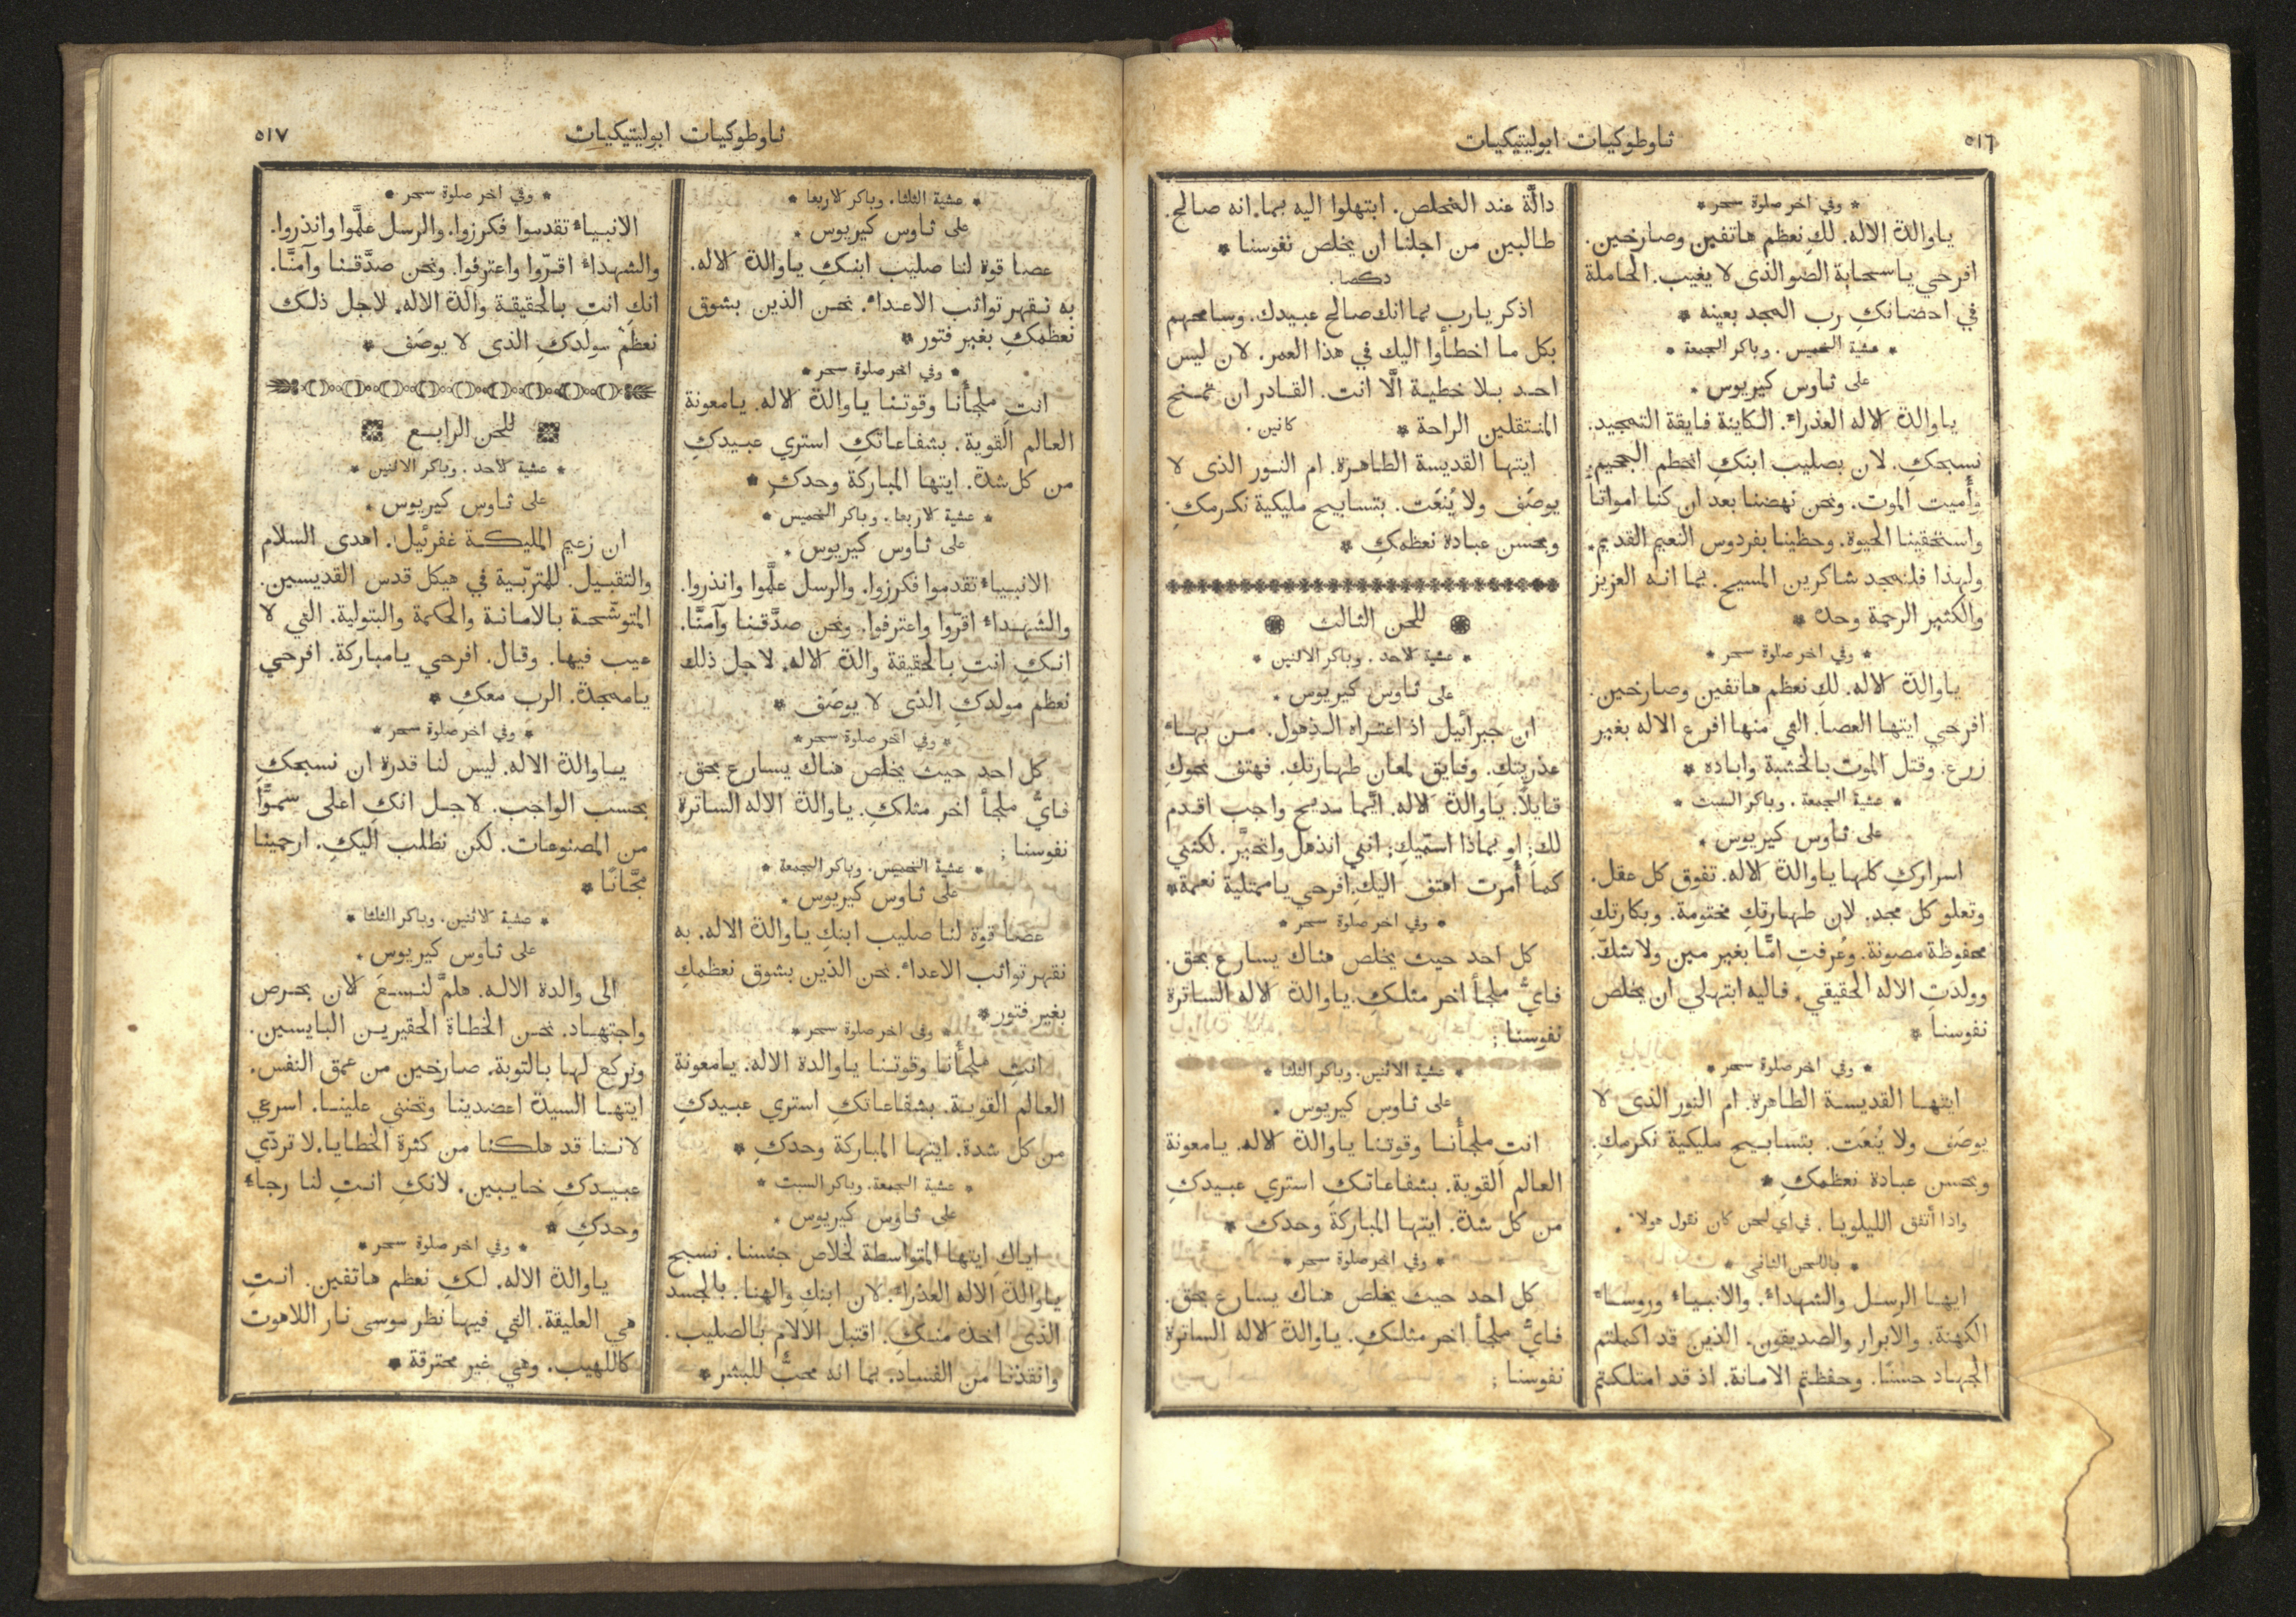 ٥١٦
ثاوطوكيات ابوليتيكيات
* وفي اخر صلوة سحر *
ياوالدة الاله. لكِ نعظم هاتفين وصارخين.
افرحي ياسحابة الضو الذى لا يغيب. الحاملة
في احضانكِ رب المجد بعينه *
* عشية الخميس. وباكر الجمعة *
على ثاوس كيريوس.
ياوالدة لاله العذراء. الكاينة فايقة التمجيد.
نسبحكِ. لان بصليب ابنكِ انحطم الجحيم.
وأُميت الموت. ونحن نهضنا بعد ان كنا امواتاً
واستحقينا الحيوة. وحظينا بفردوس النعيم القديم.
ولهذا فلنمجد شاكرين المسيح. بما انه العزيز
والكثير الرحمة وحده *
* وفي اخر صلوة سحر *
ياوالدة لاله. لكِ نعظم هاتفين وصارخين.
افرحي ايتها العصا. التي منها افرع الاله بغير
زرع. وقتل الموت بالخشبة واباده *
* عشية الجمعة. وباكر السبت *
على ثاوس كيريوس.
اسراركِ كلها ياوالدة لاله. تفوق كل عقل.
وتعلو كل مجد. لان طهارتكِ مختومة. وبكارتكِ
محفوظة مصونة. وعُرفتِ امًّا بغير مين ولا شكّ.
وولدتِ الاله الحقيقي. فاليه ابتهلي ان يخلص
نفوسنا *
* وفي اخر صلوة سحر *
ايتها القديسة الطاهرة. ام النور الذى لا
يوصَف ولا يُنعَت. بتسابيح مليكية نكرمكِ.
وبحسن عبادة نعظمكِ *
واذا أتفق الليلويا. في اي لحن كان نقول هولاء.
* باللحن الثاني *
ايها الرسل والشهداء. والانبياء وروساء
الكهنة. والابرار والصديقون. الذين قد اكملتم
الجهاد حسنًا. وحفظتم الامانة. اذ قد امتلكتم
دالَّة عند المخلص. ابتهلوا اليه بما انه صالح.
طالبين من اجلنا ان يخلص نفوسنا *
دكصا.
اذكر يارب بما انك صالح عبيدك. وسامحهم
بكل ما اخطأوا اليك في هذا العمر. لان ليس
احد بلا خطية الَّا انت. القادر ان تمنح
المنتقلين الراحة * كانين.
ايتها القديسة الطاهرة. ام النور الذى لا
يوصَف ولا يُنعَت. بتسابيح مليكية نكرمكِ.
وبحسن عبادة نعظمكِ *
للحن الثالث
* عشية لاحد. وباكر الاثنين *
على ثاوس كيريوس.
ان جبرائيل اذ اعتراه الذهول. من بهاء
عذريتكِ. وفايق لمعان طهارتكِ. فهتف نحوكِ
قايلًا. ياوالدة لاله. ايّما مديح واجب اقدم
لكِ: او بماذا اسمّيكِ: انني انذهل واتحيَّر. لكنني
كما أُمرت اهتف اليكِ. افرحي ياممتلية نعمة*
* وفي اخر صلوة سحر *
كل احد حيث يخلص هناك يسارع بحق.
فايُّ ملجأ اخر مثلكِ. ياوالدة لاله الساترة
نفوسنا:
* عشية الاثنين. وباكر الثلثا *
على ثاوس كيريوس.
انتِ ملجأنا وقوتنا ياوالدة لاله. يامعونة
العالم القوية. بشفاعاتكِ استري عبيدكِ
من كل شدة. ايتها المباركة وحدكِ *
* وفي اخر صلوة سحر *
كل احد حيث يخلص هناك يسارع بحق.
فايُّ ملجأ اخر مثلكِ. ياوالدة لاله الساترة
نفوسنا:
ثاوطوكيات ابوليتيكيات
٥١٧
* عشية الثلثا. وباكر لاربعا *
على ثاوس كيريوس.
عصا قوة لنا صليب ابنكِ ياوالدة لاله.
به نقهر تواثب الاعداء. نحن الذين بشوق
نعظمكِ بغير فتور *
* وفي اخر صلوة سحر *
انتِ ملجأنا وقوتنا ياوالدة لاله. يامعونة
العالم القوية. بشفاعاتكِ استري عبيدكِ
من كل شدة. ايتها المباركة وحدكِ *
* عشية لاربعا. وباكر الخميس *
على ثاوس كيريوس.
الانبياء تقدموا فكرزوا. والرسل علَّموا وانذروا.
والشهداء اقرّوا واعترفوا. ونحن صدَّقنا وآمنَّا.
انكِ انتِ بالحقيقة والدة لاله. لاجل ذلك
نعظم مولدكِ الذى لا يوصَف *
* وفي اخر صلوة سحر *
كل احد حيث يخلص هناك يسارع بحق.
فايُّ ملجأ اخر مثلكِ. ياوالدة الاله الساترة
نفوسنا:
* عشية الخميس. وباكر الجمعة *
على ثاوس كيريوس.
عصا قوة لنا صليب ابنكِ ياوالدة الاله. به
نقهر تواثب الاعداء. نحن الذين بشوق نعظمكِ
بغير فتور*
* وفي اخر صلوة سحر *
انتِ ملجأنا وقوتنا ياوالدة الاله. يامعونة
العالم القوية. بشفاعاتكِ استري عبيدكِ
من كل شدة. ايتها المباركة وحدكِ *
* عشية الجمعة. وباكر السبت *
على ثاوس كيريوس.
اياكِ ايتها المتواسطة لخلاص جنسنا. نسبح
ياوالدة الاله العذراء. لان ابنكِ والهنا. بالجسد
الذى اخذه منكِ. اقتبل الالام بالصليب.
وانقذنا من الفساد. بما انه محبٌّ للبشر *
* وفي اخر صلوة سحر *
الانبياء تقدموا فكرزوا. والرسل علَّموا وانذروا.
والشهداء اقرّوا واعترفوا. ونحن صدَّقنا وآمنَّا.
انكِ انتِ بالحقيقة والدة الاله. لاجل ذلك
نعظم مولدكِ الذى لا يوصَف *
للحن الرابع
* عشية لاحد. وباكر الاثنين *
على ثاوس كيريوس.
ان زعيم المليكة غفرئيل. اهدى السلام
والتقبيل. للمتربّية في هيكل قدس القديسين.
المتوشّحة بالامانة والحكمة والبتولية. التي لا
عيب فيها. وقال. افرحي يامباركة. افرحي
ياممجدة. الرب معكِ *
* وفي اخر صلوة سحر *
ياوالدة الاله. ليس لنا قدرة ان نسبحكِ
بحسب الواجب. لاجل انكِ اعلى سموًّا
من المصنوعات. لكن نطلب اليكِ. ارحمينا
مجَّانًا *
* عشية لاثنين. وباكر الثلثا *
على ثاوس كيريوس.
الى والدة الاله. هلمَّ لنسعَ لان بحرص
واجتهاد. نحن الخطاة الحقيرين البايسين.
ونركع لها بالتوبة. صارخين من عمق النفس.
ايتها السيدة اعضدينا وتحنني علينا. اسرعي
لاننا قد هلكنا من كثرة الخطايا. لا تردّي
عبيدكِ خايبين. لانكِ انتِ لنا رجاء
وحدكِ *
* وفي اخر صلوة سحر *
ياوالدة الاله. لكِ نعظم هاتفين. انتِ
هي العليقة. التي فيها نظر موسى نار اللاهوت
كاللهيب. وهي غير محترقة *